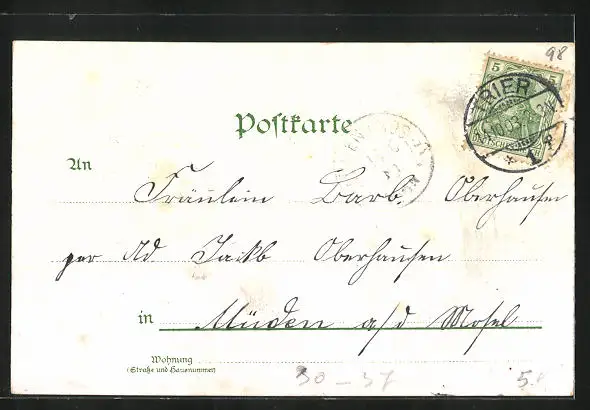 98
5
TRIER
Postkarte
An
Fräulein Barb. Oberhausen
per Ad Jakb Oberhausen
in Müden a/d Mosel
Wohnung
(Straße und Hausnummer)
30 - 37